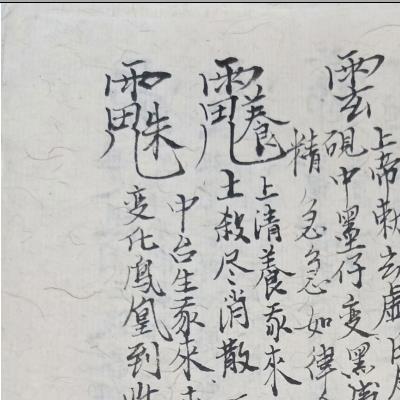 雲
上帝勅玄虛
硯中墨仔变黑
精急急如律
上清養豕來
土殺尽消散一
中台生豕來
变化鳳凰到